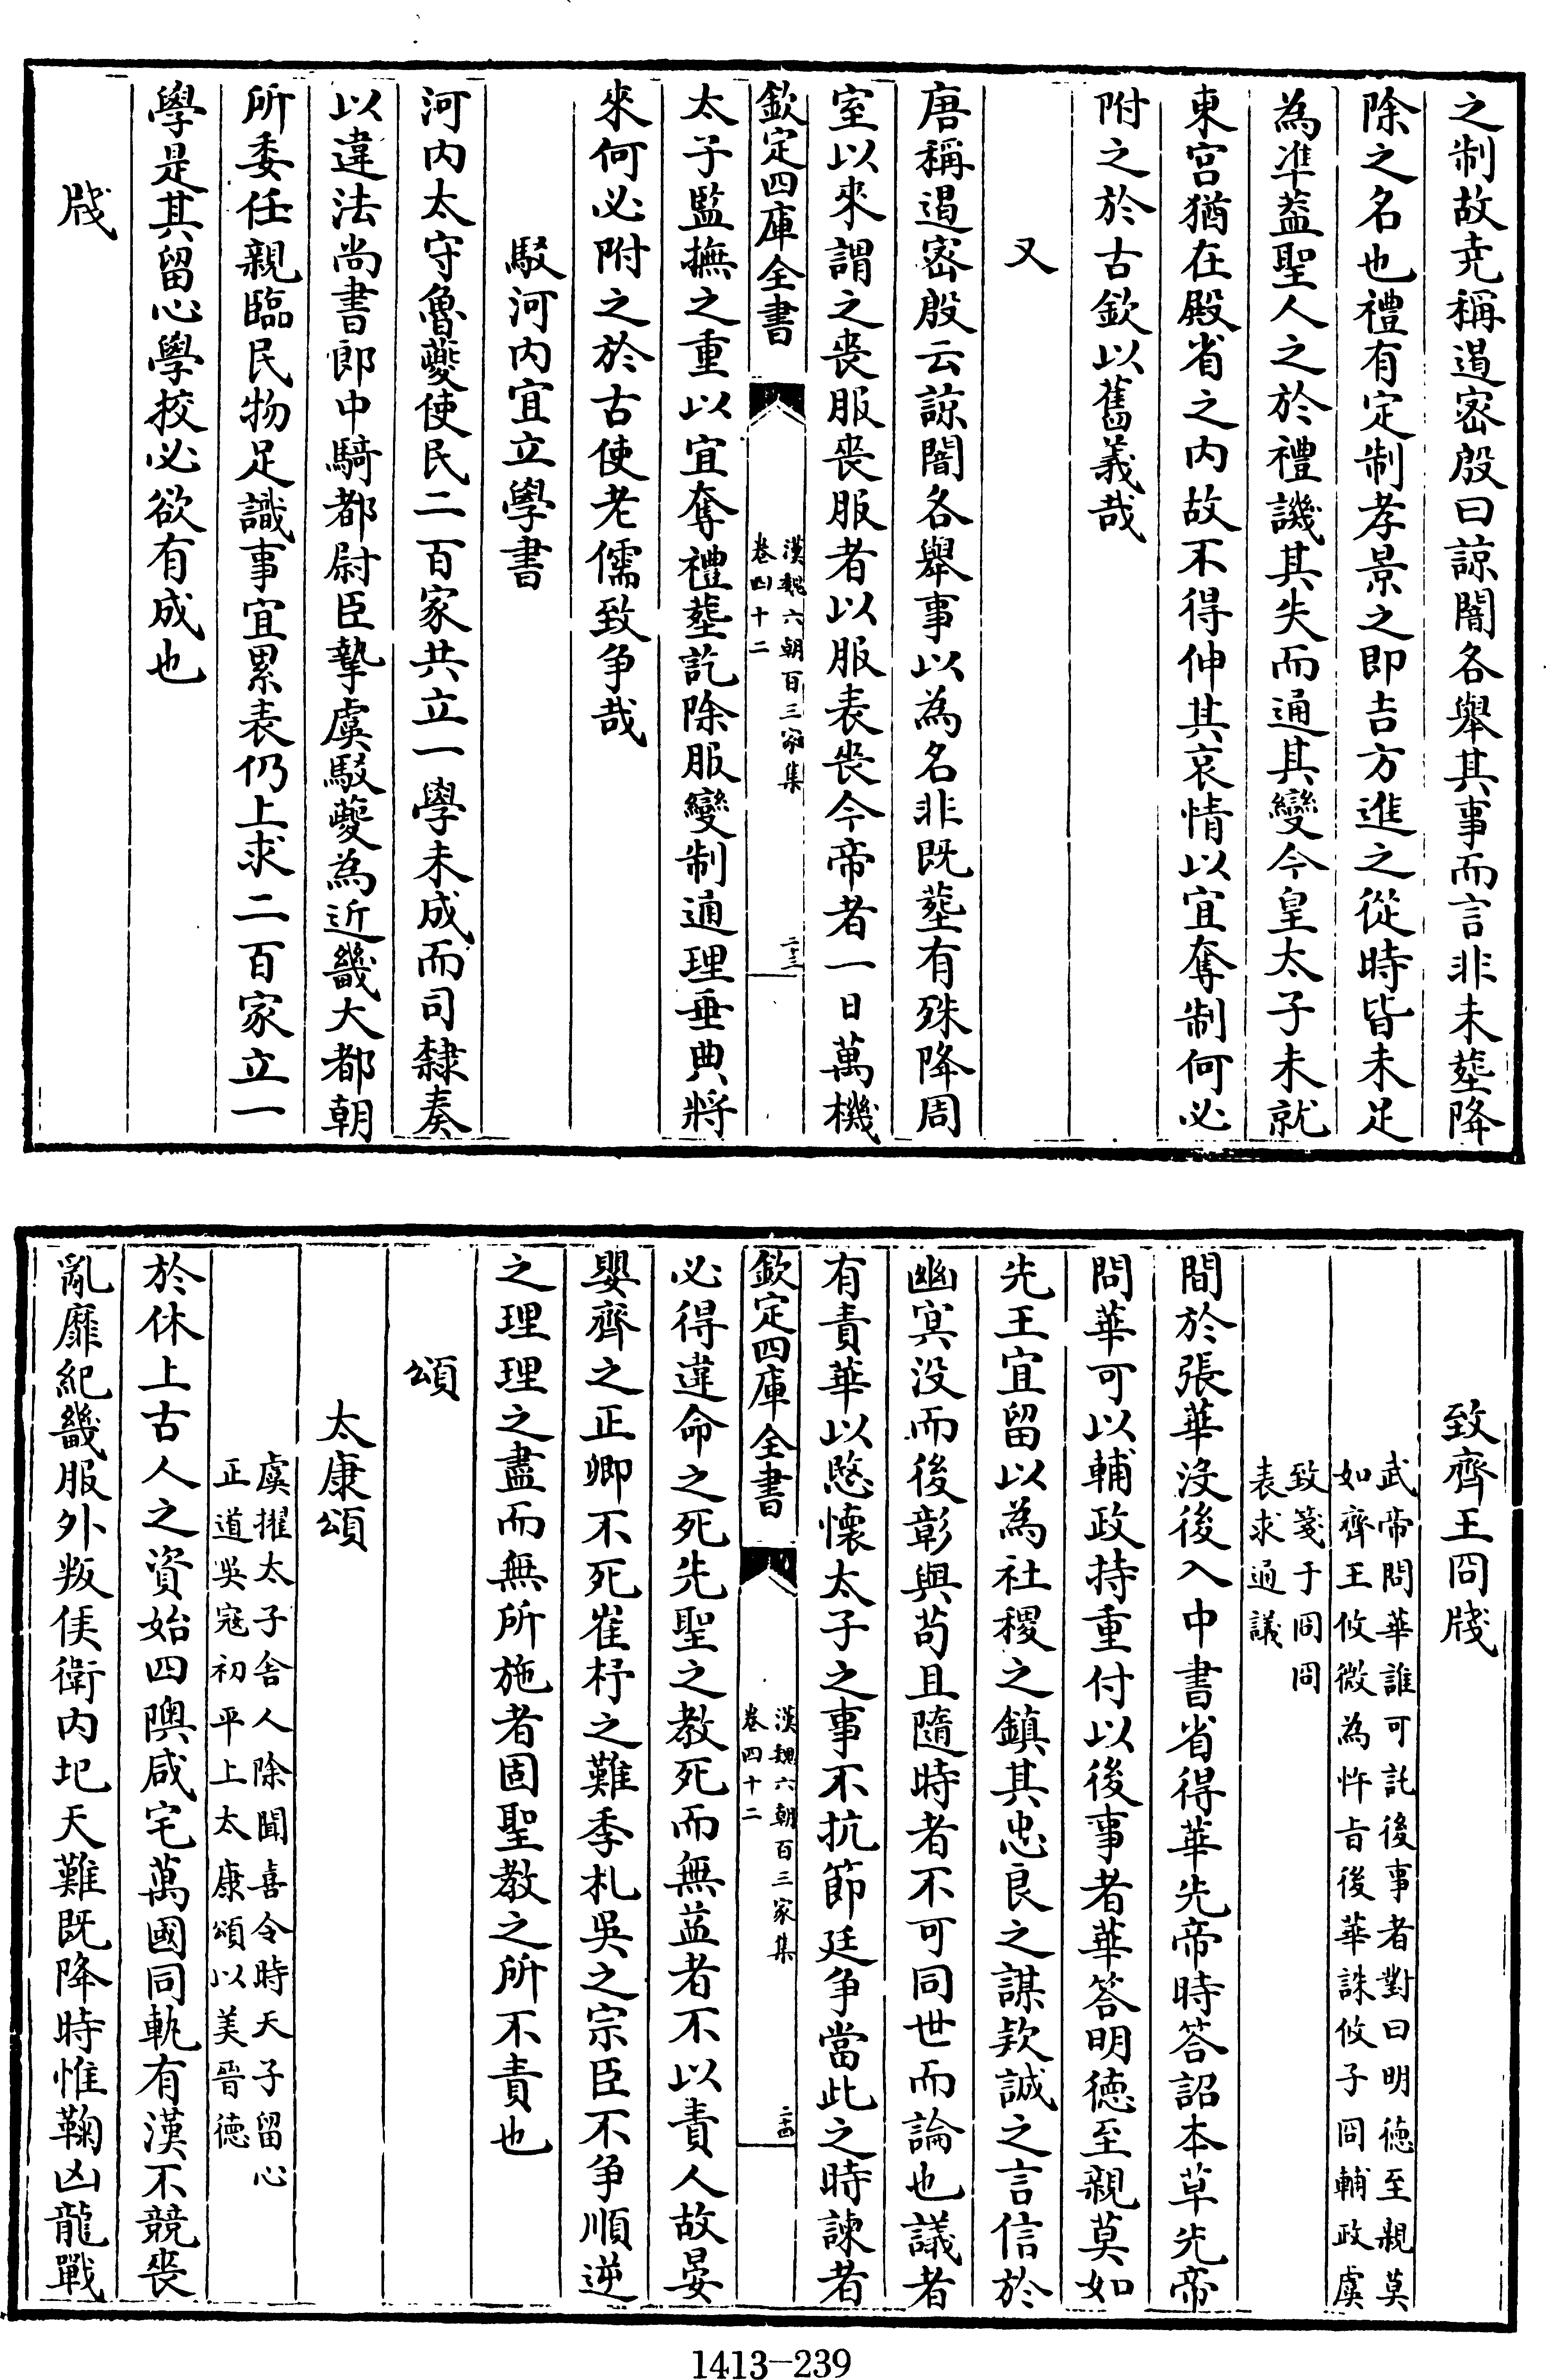 之制故尭稱遏宻殷曰諒闇各舉其事而言非未葬降
除之名也禮有定制孝景之即吉方進之從時皆未足
為凖葢聖人之於禮譏其失而通其變今皇太子未就
東宮猶在殿省之内故不得伸其哀情以宜奪制何必
附之於古欽以舊義哉
又
唐稱遏宻殷云諒闇各舉事以為名非既葬有殊降周
室以來謂之喪服喪服者以服表喪今帝者一日萬機
欽定四庫全書
漢魏六朝百三家集
卷四十二
二十三
太子監撫之重以宜奪禮葬訖除服變制通理垂典將
來何必附之於古使老儒致争哉
駁河内宜立學書
河内太守魯䕫使民二百家共立一學未成而司隸奏
以違法尚書郎中騎都尉臣摯虞駁䕫為近畿大都朝
所委任親臨民物足識事宜累表仍上求二百家立一
學是其留心學挍必欲有成也
牋
致齊王冏牋
武帝問華誰可託後事者對曰明徳至親莫
如齊王攸微為忤㫖後華誅攸子冏輔政虞
致箋于冏冏
表求通議
間於張華没後入中書省得華先帝時答詔本草先帝
問華可以輔政持重付以後事者華答明徳至親莫如
先王宜留以為社稷之鎮其忠良之謀欵誠之言信於
幽㝠没而後彰與茍且隨時者不可同世而論也議者
有責華以愍懐太子之事不抗節廷争當此之時諫者
欽定四庫全書
漢魏六朝百三家集
卷四十二
二十四
必得違命之死先聖之教死而無益者不以責人故晏
嬰齊之正卿不死崔杼之難季札吳之宗臣不争順逆
之理理之盡而無所施者固聖教之所不責也
頌
太康頌
虞擢太子舍人除聞喜令時天子留心
正道吳寇初平上太康頌以美晉徳
於休上古人之資始四隩咸宅萬國同軌有漢不競喪
亂靡紀畿服外叛侯衛内圮天難既降時惟鞠凶龍戰
1413—239